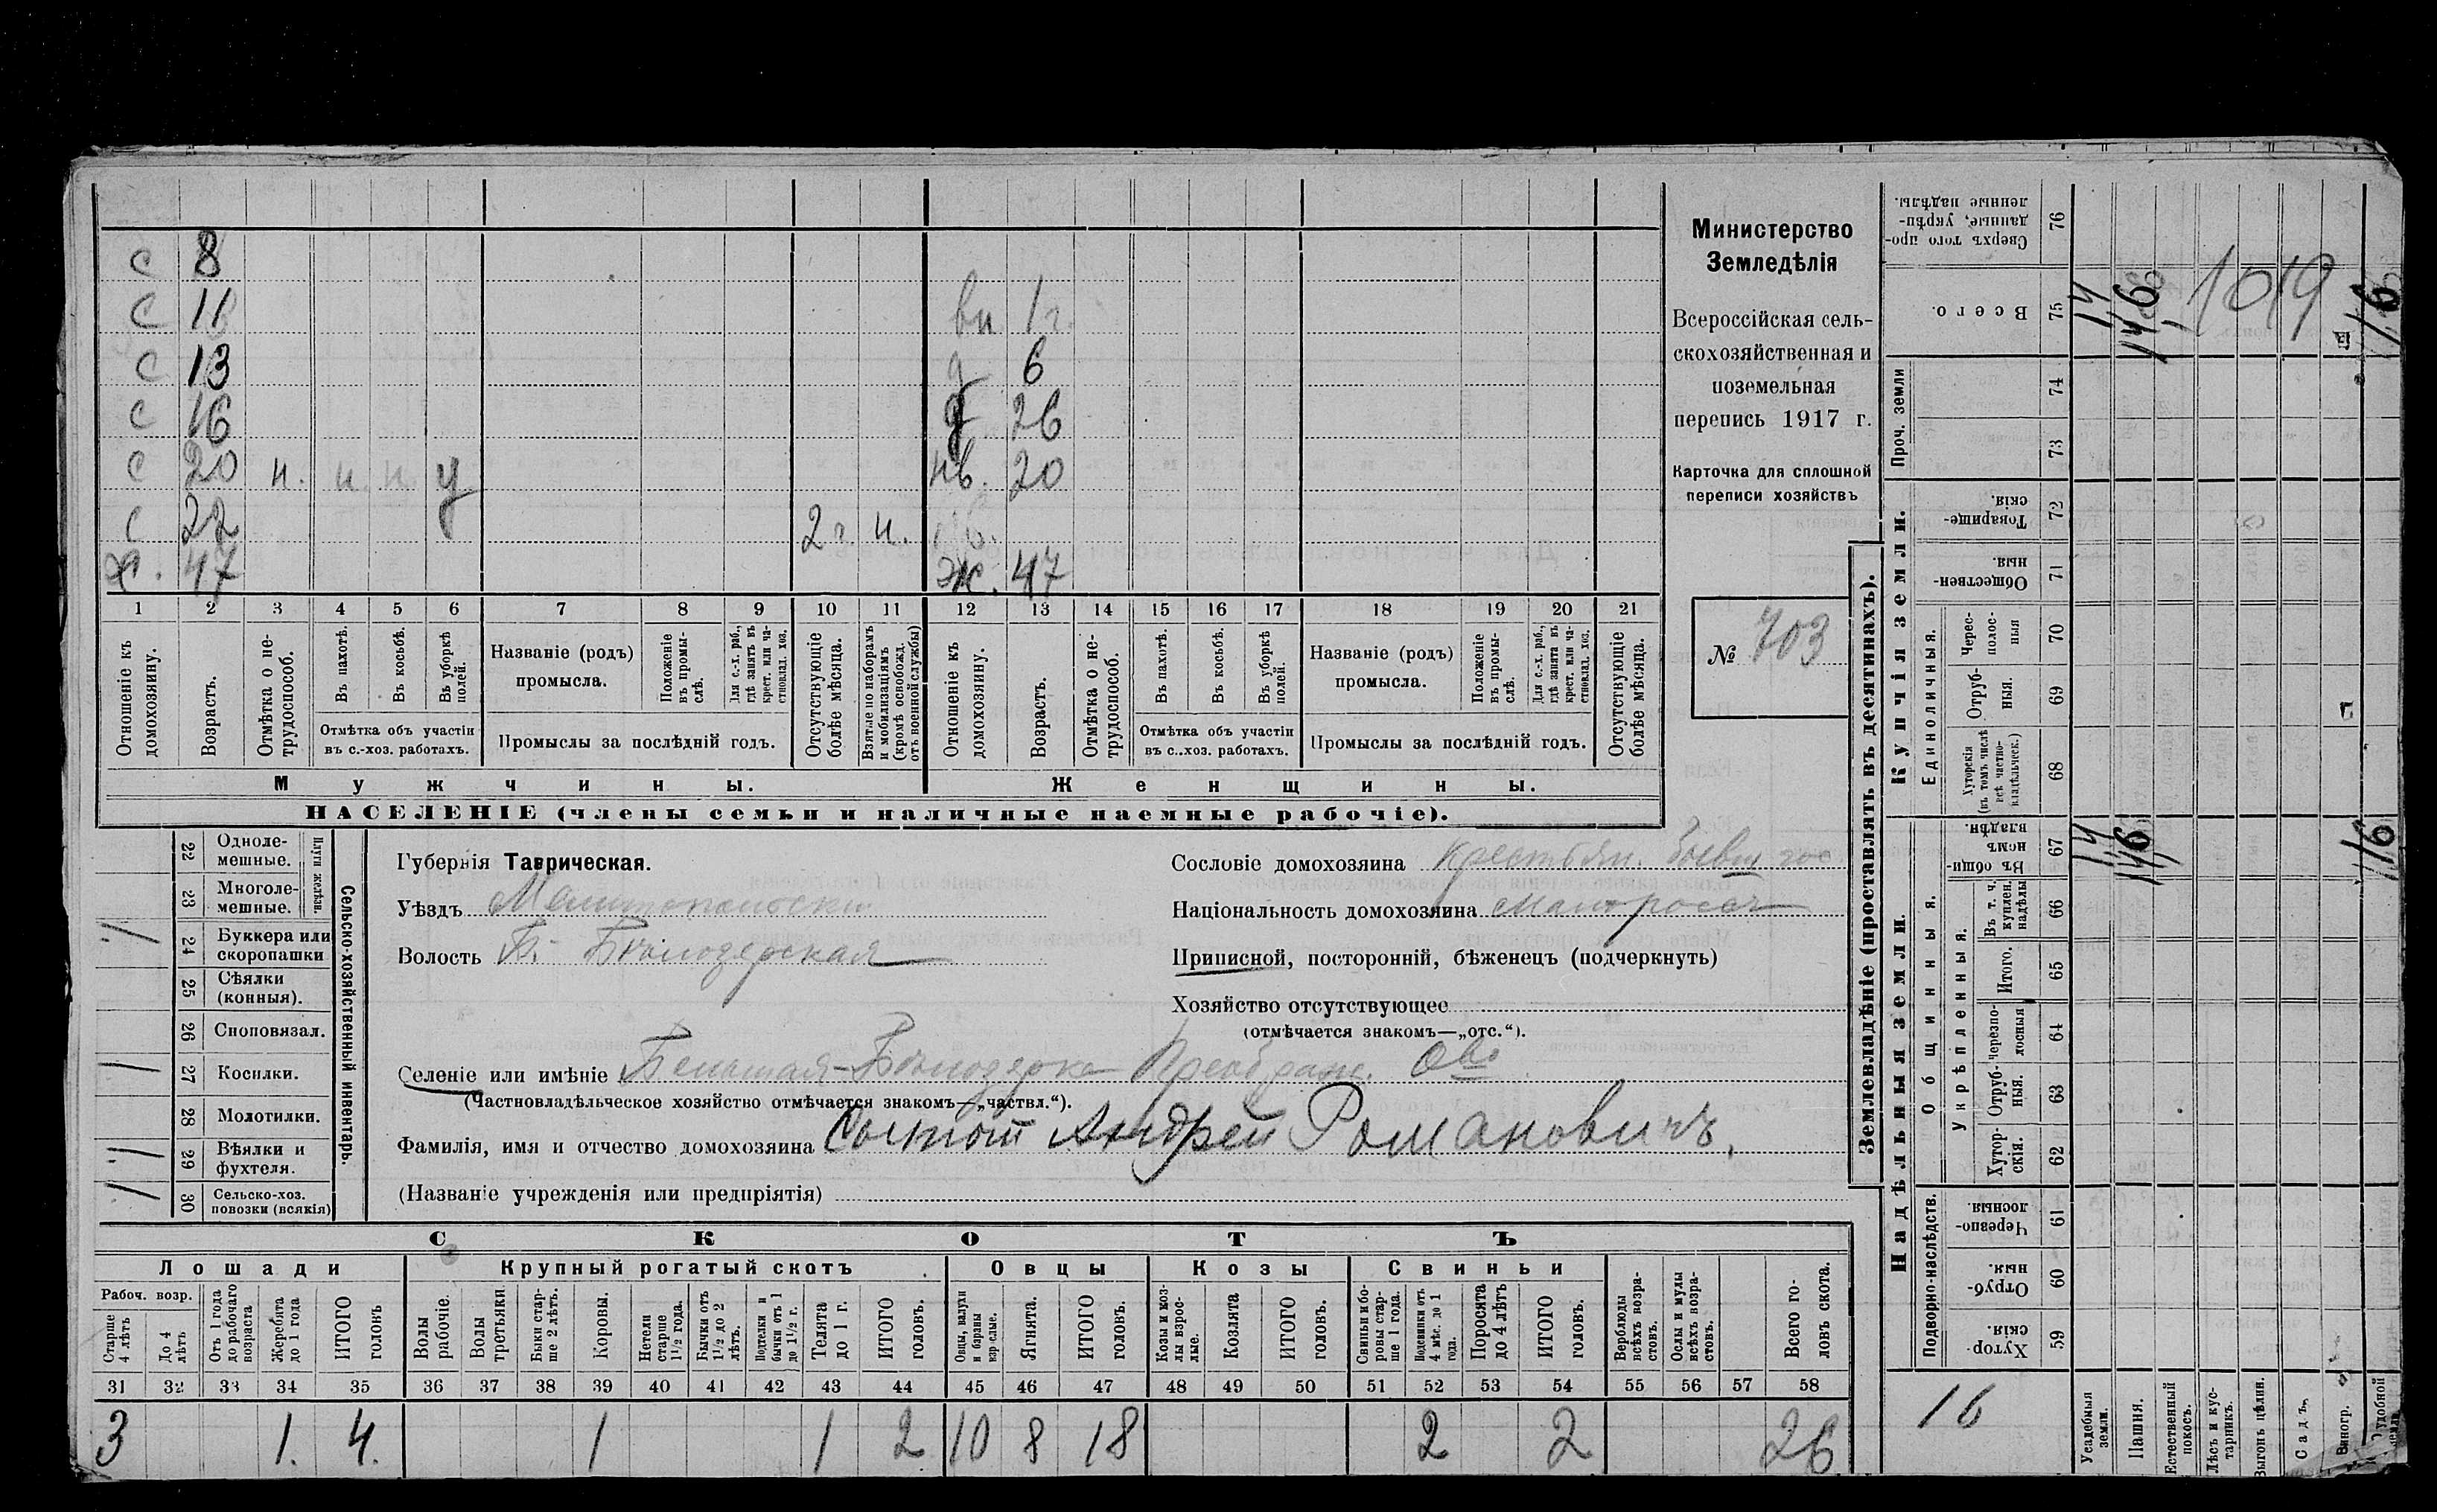 с 8
с 11
вн 1 г.
с 13
д 6
с 16
д 26
с 20 н. н. н у
нв. 20
с 22
2 г н.
х. 47
ж. 47
1 2 3 4 5 6 7 8 9 10 11 12 13 14 15 16 17 18 19 20 21
Отношеніе къ домохозяину.
Возрастъ.
Отмѣтка о не-трудоспособ.
Въ пахотѣ.
Въ косьбѣ.
Въ уборкѣ полей.
Отмѣтка объ участіи въ с.-хоз. работахъ.
Названіе (родъ) промысла.
Положеніе въ промы-слѣ.
Для с.-х. раб., гдѣ занятъ въ крест. или ча-стновлад. хоз.
Промыслы за послѣдній годъ.
Отсутствующіе болѣе мѣсяца.
Взятые по наборамъ и мобилизаціямъ (кромѣ освобожд. отъ военной службы)
Отношеніе къ домохозяину.
Возрастъ.
Отмѣтка о не-трудоспособ.
Въ пахотѣ.
Въ косьбѣ.
Въ уборкѣ полей.
Отмѣтка объ участіи въ с.-хоз. работахъ.
Названіе (родъ) промысла.
Положеніе въ промы-слѣ.
Для с.-х. раб., гдѣ занята въ крест. или ча-стновлад. хоз.
Промыслы за послѣдній годъ.
Отсутствующіе болѣе мѣсяца.
Мужчины.
Женщины.
НАСЕЛЕНІЕ (члены семьи и наличные наемные рабочіе).
Министерство
Земледѣлія
Всероссійская сель-
скохозяйственная и
поземельная
перепись 1917 г.
Карточка для сплошной
переписи хозяйствъ
№ 703
22 Одноле-мешные.
23 Многоле-мешные.
Плуги желѣзн.
24 Буккера или скоропашки
25 Сѣялки (конныя).
26 Сноповязал.
27 Косилки.
28 Молотилки.
29 Вѣялки и фухтеля.
30 Сельско-хоз. повозки (всякія)
Сельско-хозяйственный инвентарь.
Губернія Таврическая.
Уѣздъ Мелитопольскій
Волость Б.- Бѣлозерская
Сословіе домохозяина Крестьян. бывш гос.
Національность домохозяина малоросс
Приписной, посторонній, бѣженецъ (подчеркнуть)
Хозяйство отсутствующее
(отмѣчается знакомъ—„отс.“).
Селеніе или имѣніе Большая-Бѣлозерка Преображ. О-во
(Частновладѣльческое хозяйство отмѣчается знакомъ—„частвл.“).
Фамилія, имя и отчество домохозяина Андрей Романовичъ.
(Названіе учрежденія или предпріятія)
СКОТЪ
Лошади
Крупный рогатый скотъ
Овцы
Козы
Свиньи
Рабоч. возр.
Старше 4 лѣтъ
До 4 лѣтъ
Отъ 1 года до рабочаго возраста
Жеребята до 1 года
ИТОГО головъ
Волы рабочіе.
Волы третьяки.
Быки стар-ше 2 лѣтъ.
Коровы.
Нетели старше 1½ года.
Бычки отъ 1½ до 2 лѣтъ.
Подтелки и бычки отъ 1 до 1½ г.
Телята до 1 г.
ИТОГО головъ.
Овцы, валухи и бараны взрослые.
Ягнята.
ИТОГО головъ.
Козы и коз-лы взрос-лые.
Козлята
ИТОГО головъ.
Свиньи и бо-ровы стар-ше 1 года.
Подсвинки отъ 4 мѣс. до 1 года.
Поросята до 4 лѣтъ
ИТОГО головъ.
Верблюды всѣхъ возра-стовъ.
Ослы и мулы всѣхъ возра-стовъ.
Всего го-ловъ скота.
31 32 33 34 35 36 37 38 39 40 41 42 43 44 45 46 47 48 49 50 51 52 53 54 55 56 57 58
3 1. 4. 1 1 2 10 8 18 2 2 26
Землевладѣніе (проставлять въ десятинахъ).
Купчія земли.
Надѣльныя земли.
Сверхъ того про-данные, укрѣп-ленные надѣлы. 76
Всего. 75
Проч. земли
74
73
Товарище-скія. 72
Обществен-ныя 71
Единоличныя.
Черес-полос-ныя 70
Отруб-ныя. 69
Хуторскія (въ томъ числѣ всѣ частно-владѣльческ.) 68
Общинныя.
Въ общи-номъ владѣн. 67
Укрѣпленныя.
Въ т. ч. куплен. надѣлы 66
Итого. 65
Черезпо-лосныя 64
Отруб-ныя. 63
Хутор-скія. 62
Подворно-наслѣдств.
Черезпо-лосныя 61
Отруб-ныя. 60
Хутор-скія 59
16
Усадебныя земли.
Пашня.
Естественный покосъ.
Лѣсъ и кус-тарникъ.
Выгонъ цѣлин.
Садъ.
Виногр.